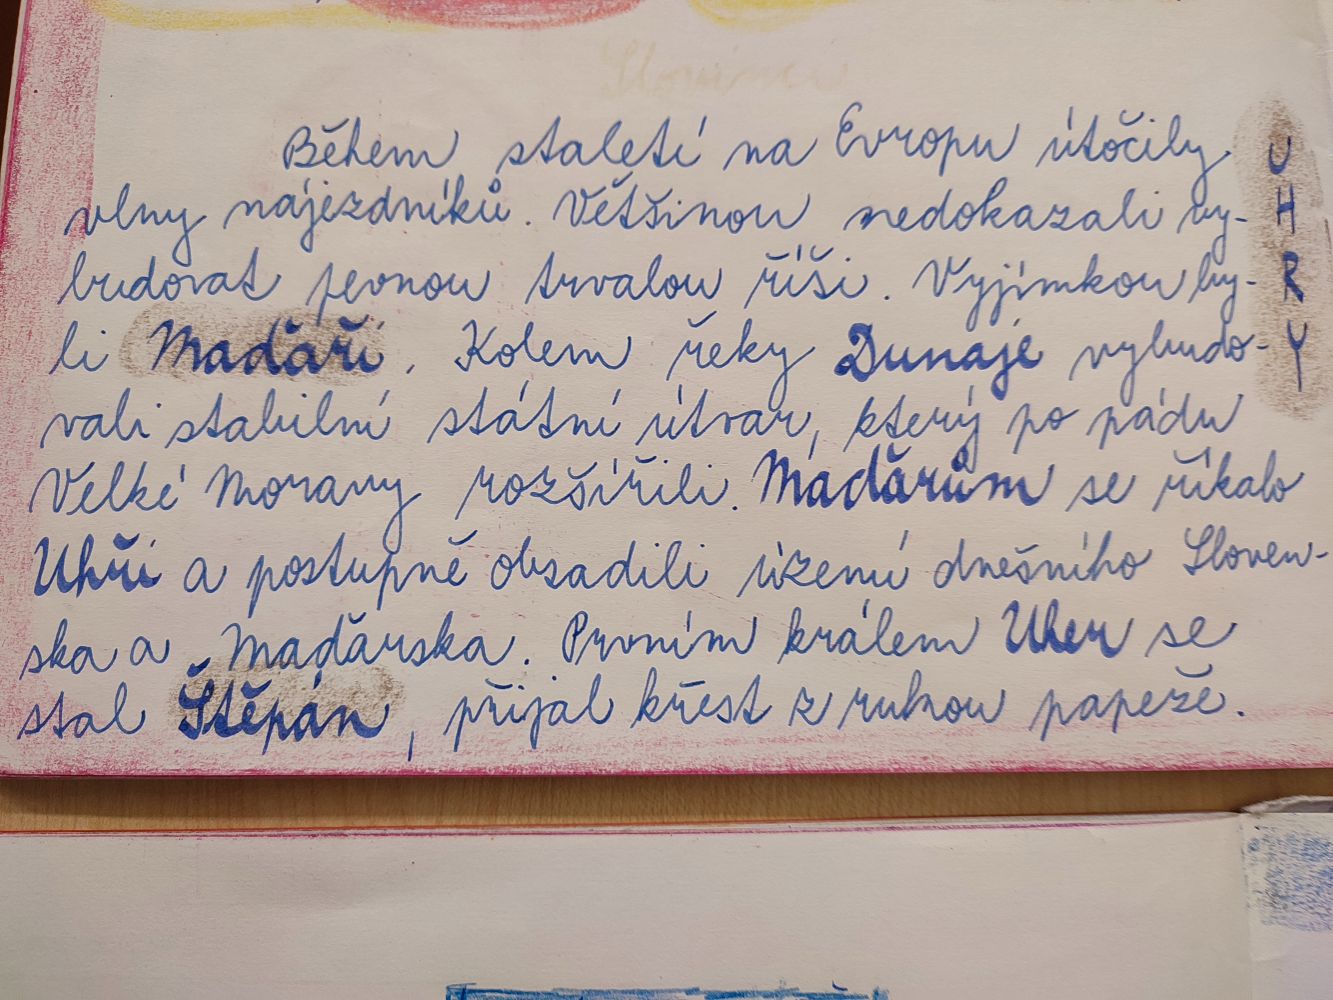 Během staletí na Evropu útočily
vlny nájezdníků. Většinou nedokazali vy-
budovat pevnou trvalou říši. Vyjímkou by-
li Maďaři. Kolem řeky Dunaje vybudo-
vali stabilní státní útvar, který po pádu
Velké Moravy rozšířili. Maďarům se říkalo
Uhři a postupně obsadili území dnešního Sloven-
ska a Maďarska. Prvním králem Uher se
stal Štěpán, přijal křest z rukou papeže.
UHRY